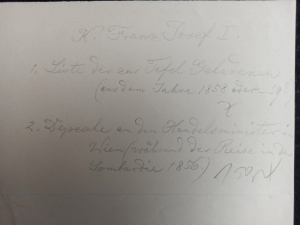 K. Franz Josef I.
1. Liste der zur Tafel Geladenen
(aus dem Jahre 1858 oder 59)
2. Depesche an den Handelsminister in
Wien (während der Reise in der
Lombardie 1856)